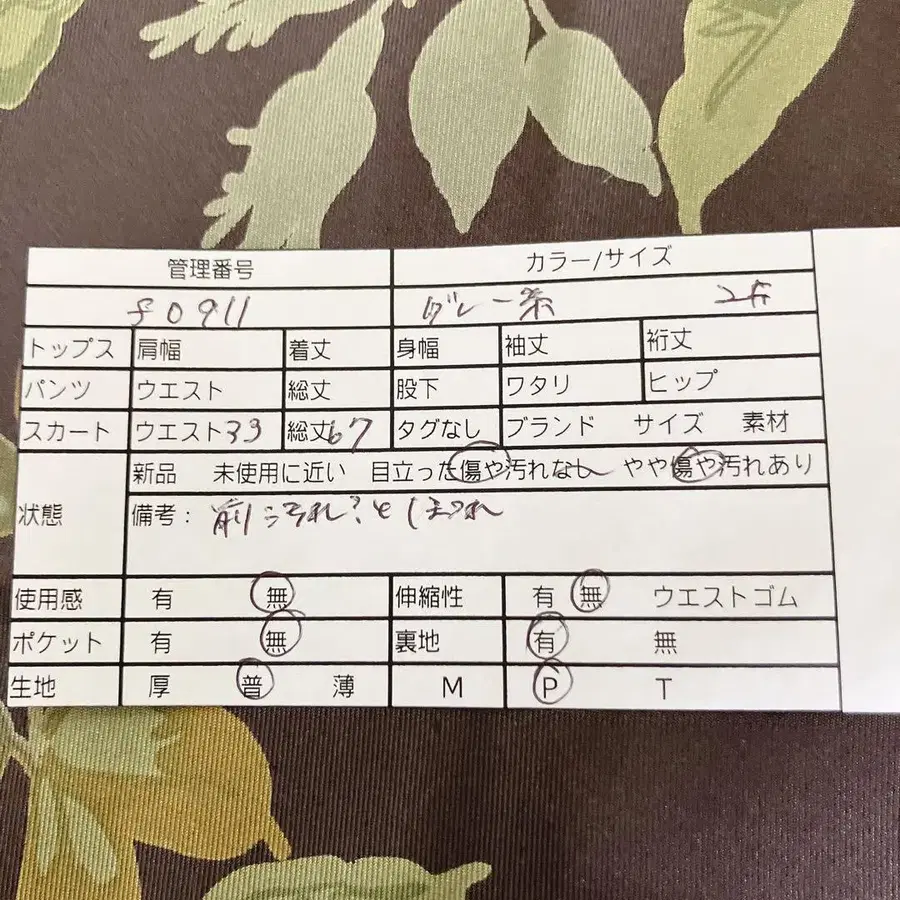 管理番号 カラー/サイズ
f0911 グレー系
トップス 肩幅 着丈 身幅 袖丈 裄丈
パンツ ウエスト 総丈 股下 ワタリ ヒップ
スカート ウエスト33 総丈67 タグなし ブランド サイズ 素材
新品 未使用に近い 目立った傷や汚れなし やや傷や汚れあり
状態 備考:
使用感 有 無 伸縮性 有 無 ウエストゴム
ポケット 有 無 裏地 有 無
生地 厚 普 薄 M P T